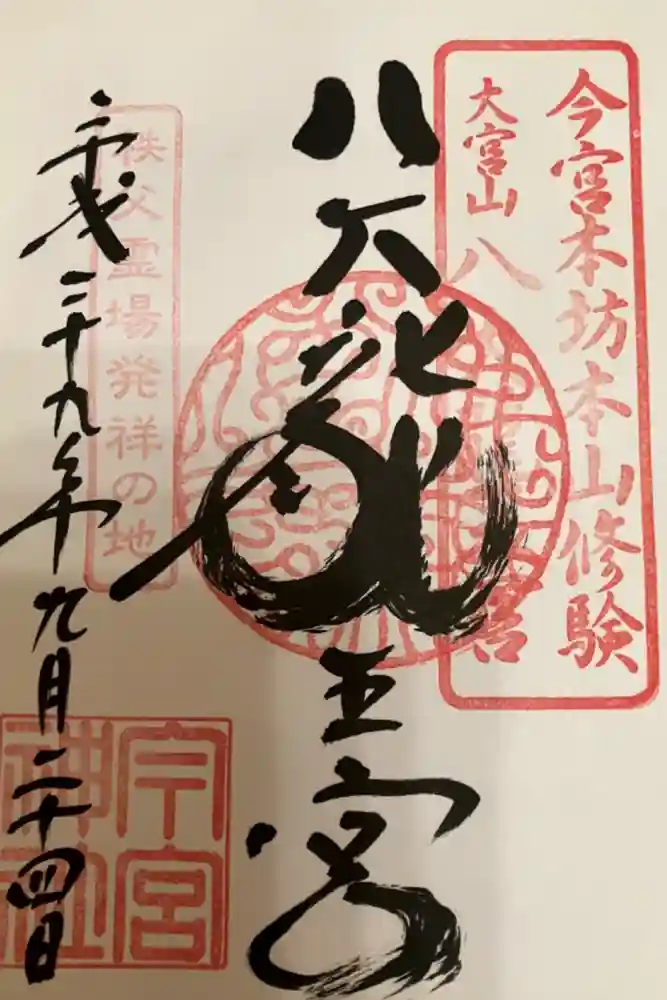 今宮本坊本山修験
大宮山 八 宮
八大龍王宮
秩父霊場発祥の地
平成二十九年九月二十四日
今宮
神社